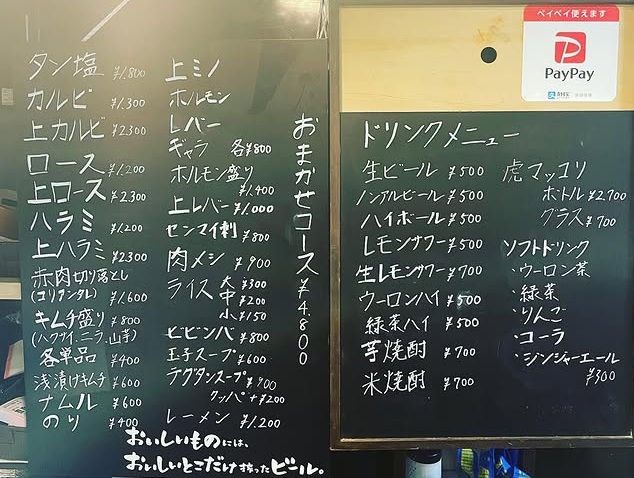 タン塩 ¥1.800
カルビ ¥1.300
上カルビ ¥2300
ロース ¥1.200
上ロース ¥2300
ハラミ ¥1.200
上ハラミ ¥2300
赤肉切り落とし
(コリアンタレ) ¥1.600
キムチ盛り ¥800
(ハクサイ、ニラ、山芋)
各単品 ¥400
浅漬けキムチ ¥600
ナムル ¥600
のり ¥400
上ミノ
ホルモン
レバー
ギャラ 各¥800
ホルモン盛り
¥1.400
上レバー ¥1.000
センマイ刺 ¥800
肉メシ ¥900
ライス 大 ¥300
中 ¥200
小 ¥150
ビビンバ ¥800
玉子スープ ¥600
テグタンスープ ¥900
クッパ +¥200
レーメン ¥1.200
おまかせコース ¥4.800
おいしいものには、
おいしいとこだけ搾ったビール。
ペイペイ使えます
PayPay
ドリンクメニュー
生ビール ¥500
ノンアルビール ¥500
ハイボール ¥500
レモンサワー ¥500
生レモンサワー ¥700
ウーロンハイ ¥500
緑茶ハイ ¥500
芋焼酎 ¥700
米焼酎 ¥700
虎マッコリ
ボトル ¥2.700
グラス ¥700
ソフトドリンク
・ウーロン茶
・緑茶
・りんご
・コーラ
・ジンジャーエール
¥300